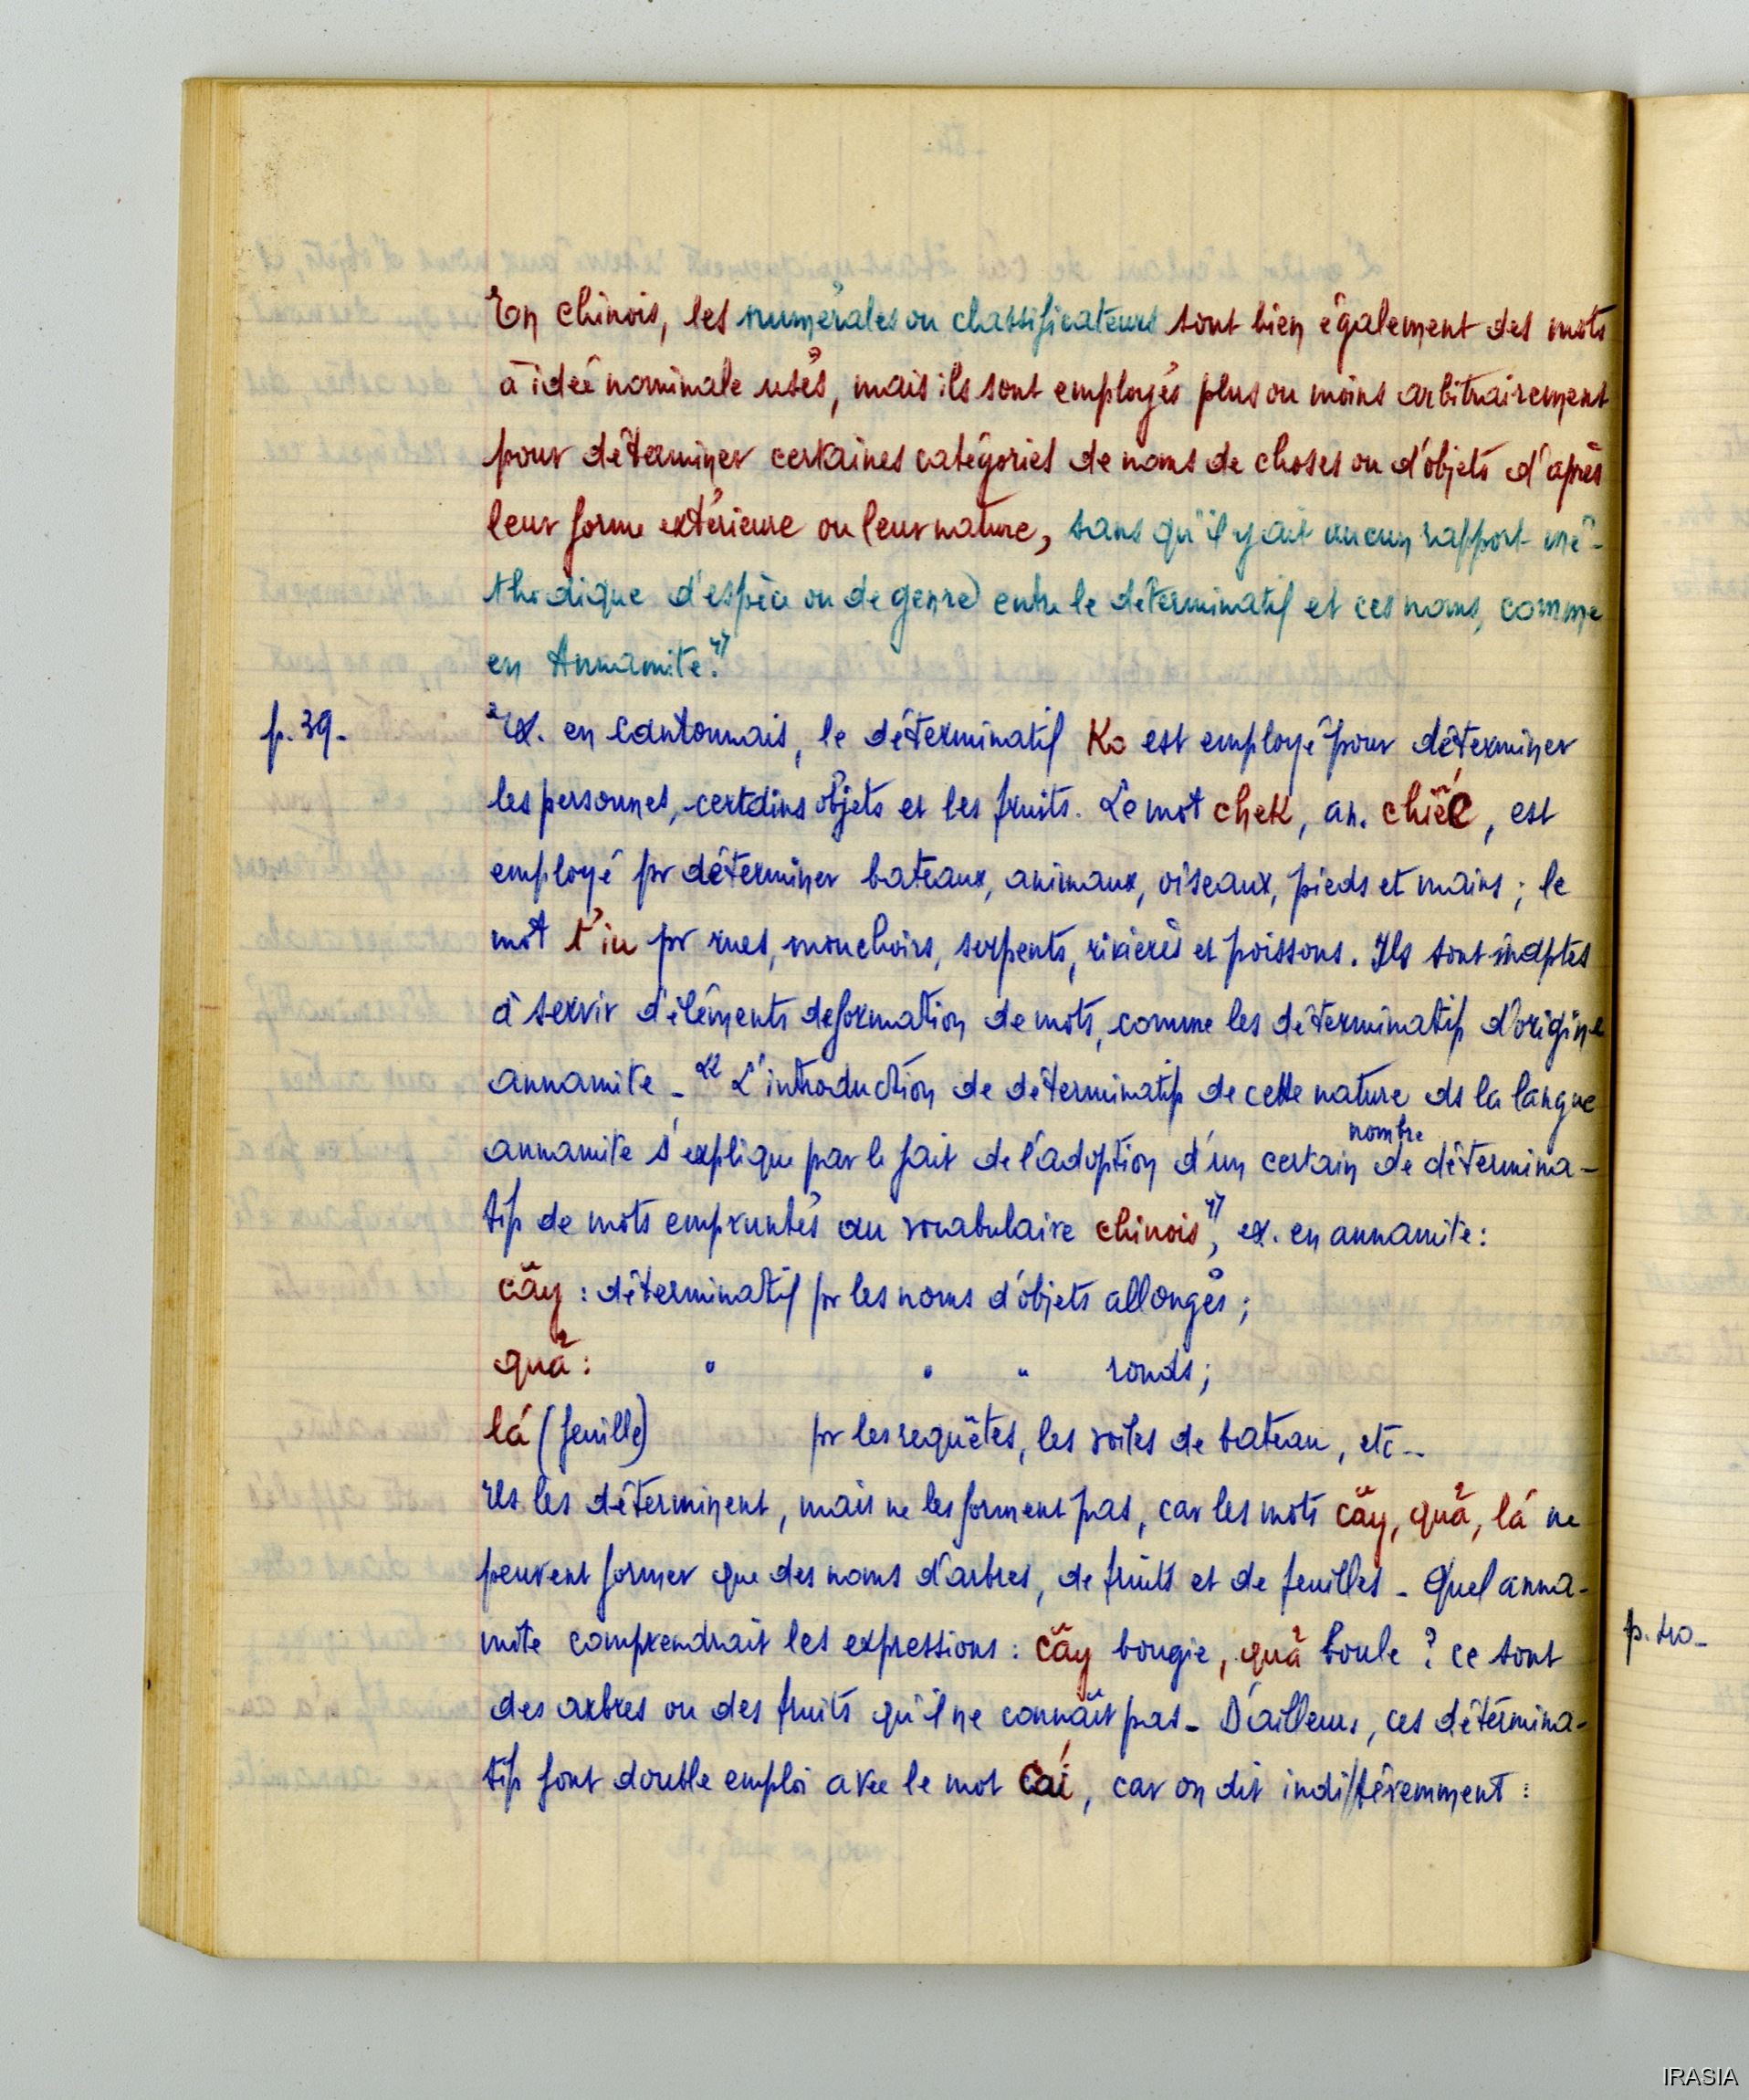 En chinois, les numérales ou classificateurs sont bien également des mots
à idée nominale usés, mais ils sont employés plus ou moins arbitrairement
pour déterminer certaines catégories de noms de choses ou d'objets d'après
leur forme extérieure ou leur nature, sans qu'il y ait aucun rapport mé-
thodique d'espèce ou de genre) entre le déterminatif et ces noms, comme
en Annamite."
p. 39.
Ex. en Cantonnais, le déterminatif Ko est employé pour déterminer
les personnes, certains objets et les fruits. Le mot chek, an. chiếc, est
employé pr déterminer bateaux, animaux, oiseaux, pieds et mains ; le
mot t'iu pr rues, mouchoirs, serpents, rivières et poissons. Ils sont inaptes
à servir d'éléments de formation de mots, comme les déterminatifs d'origine
annamite - "L'introduction de déterminatifs de cette nature ds la langue
annamite s'explique par le fait de l'adoption d'un certain nombre de détermina-
tifs de mots empruntés au vocabulaire chinois", ex. en annamite :
cây : déterminatif pr les noms d'objets allongés ;
quả : " " " ronds ;
lá (feuille) pr les requêtes, les voiles de bateau, etc -
Ils les déterminent, mais ne les forment pas, car les mots cây, quả, lá ne
peuvent former que des noms d'arbres, de fruits et de feuilles - Quel anna-
mite comprendrait les expressions : cây bougie, quả boule ? ce sont
des arbres ou des fruits qu'il ne connaît pas - D'ailleurs, ces détermina-
tifs font double emploi avec le mot cái, car on dit indifféremment :
p. 40-
IRASIA